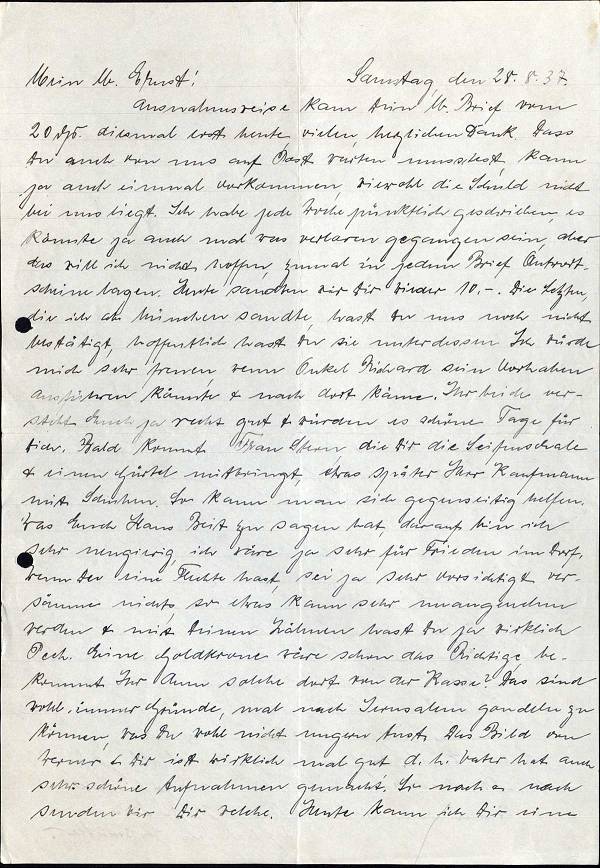 Mein lb. Ernst! Samstag, den 28.8.37.
Ausnahmsweise kam Dein lb. Brief vom
20 ds. diesmal erst heute, vielen, herzlichen Dank. Dass
Du auch von uns auf Post warten musstest, kann
ja auch einmal vorkommen, wiewohl die Schuld nicht
bei uns liegt. Ich habe jede Woche pünktlich geschrieben, es
könnte ja auch mal was verloren gegangen sein, aber
das will ich nicht hoffen, zumal in jedem Brief Antwort-
scheine lagen. Heute sandten wir Dir wieder 10,-. Die letzten,
die ich ab München sandte, hast Du uns noch nicht
bestätigt, hoffentlich hast Du sie unterdessen. Ich würde
mich sehr freuen, wenn Onkel Richard sein Vorhaben
ausführen könnte & nach dort käme. Ihr beide ver-
steht Euch ja recht gut & würden es schöne Tage für
Dich. Bald kommt Frau Stern, die Dir die Seifenschale
& einen Gürtel mitbringt, etwas später Herr Kaufmann
mit Schuhen. So kann man sich gegenseitig helfen.
Was Euch Hans Beit zu sagen hat, darauf bin ich
sehr neugierig, ich wäre ja sehr für Frieden im Dorf.
Wenn Du eine Flechte hast, sei ja sehr vorsichtig & ver-
säume nichts, so etwas kann sehr unangenehm
werden & mit Deinen Zähnen hast Du ja wirklich
Pech. Eine Goldkrone wäre schon das Richtige, be-
kommt Ihr denn solche dort von der Kasse? Das sind
wohl immer Gründe, mal nach Jerusalem gondeln zu
können, was Du wohl nicht ungern tust. Das Bild von
Werner & Dir ist wirklich mal gut d. h. Vater hat auch
sehr schöne Aufnahmen gemacht. So nach & nach
senden wir Dir welche. Heute kann ich Dir eine